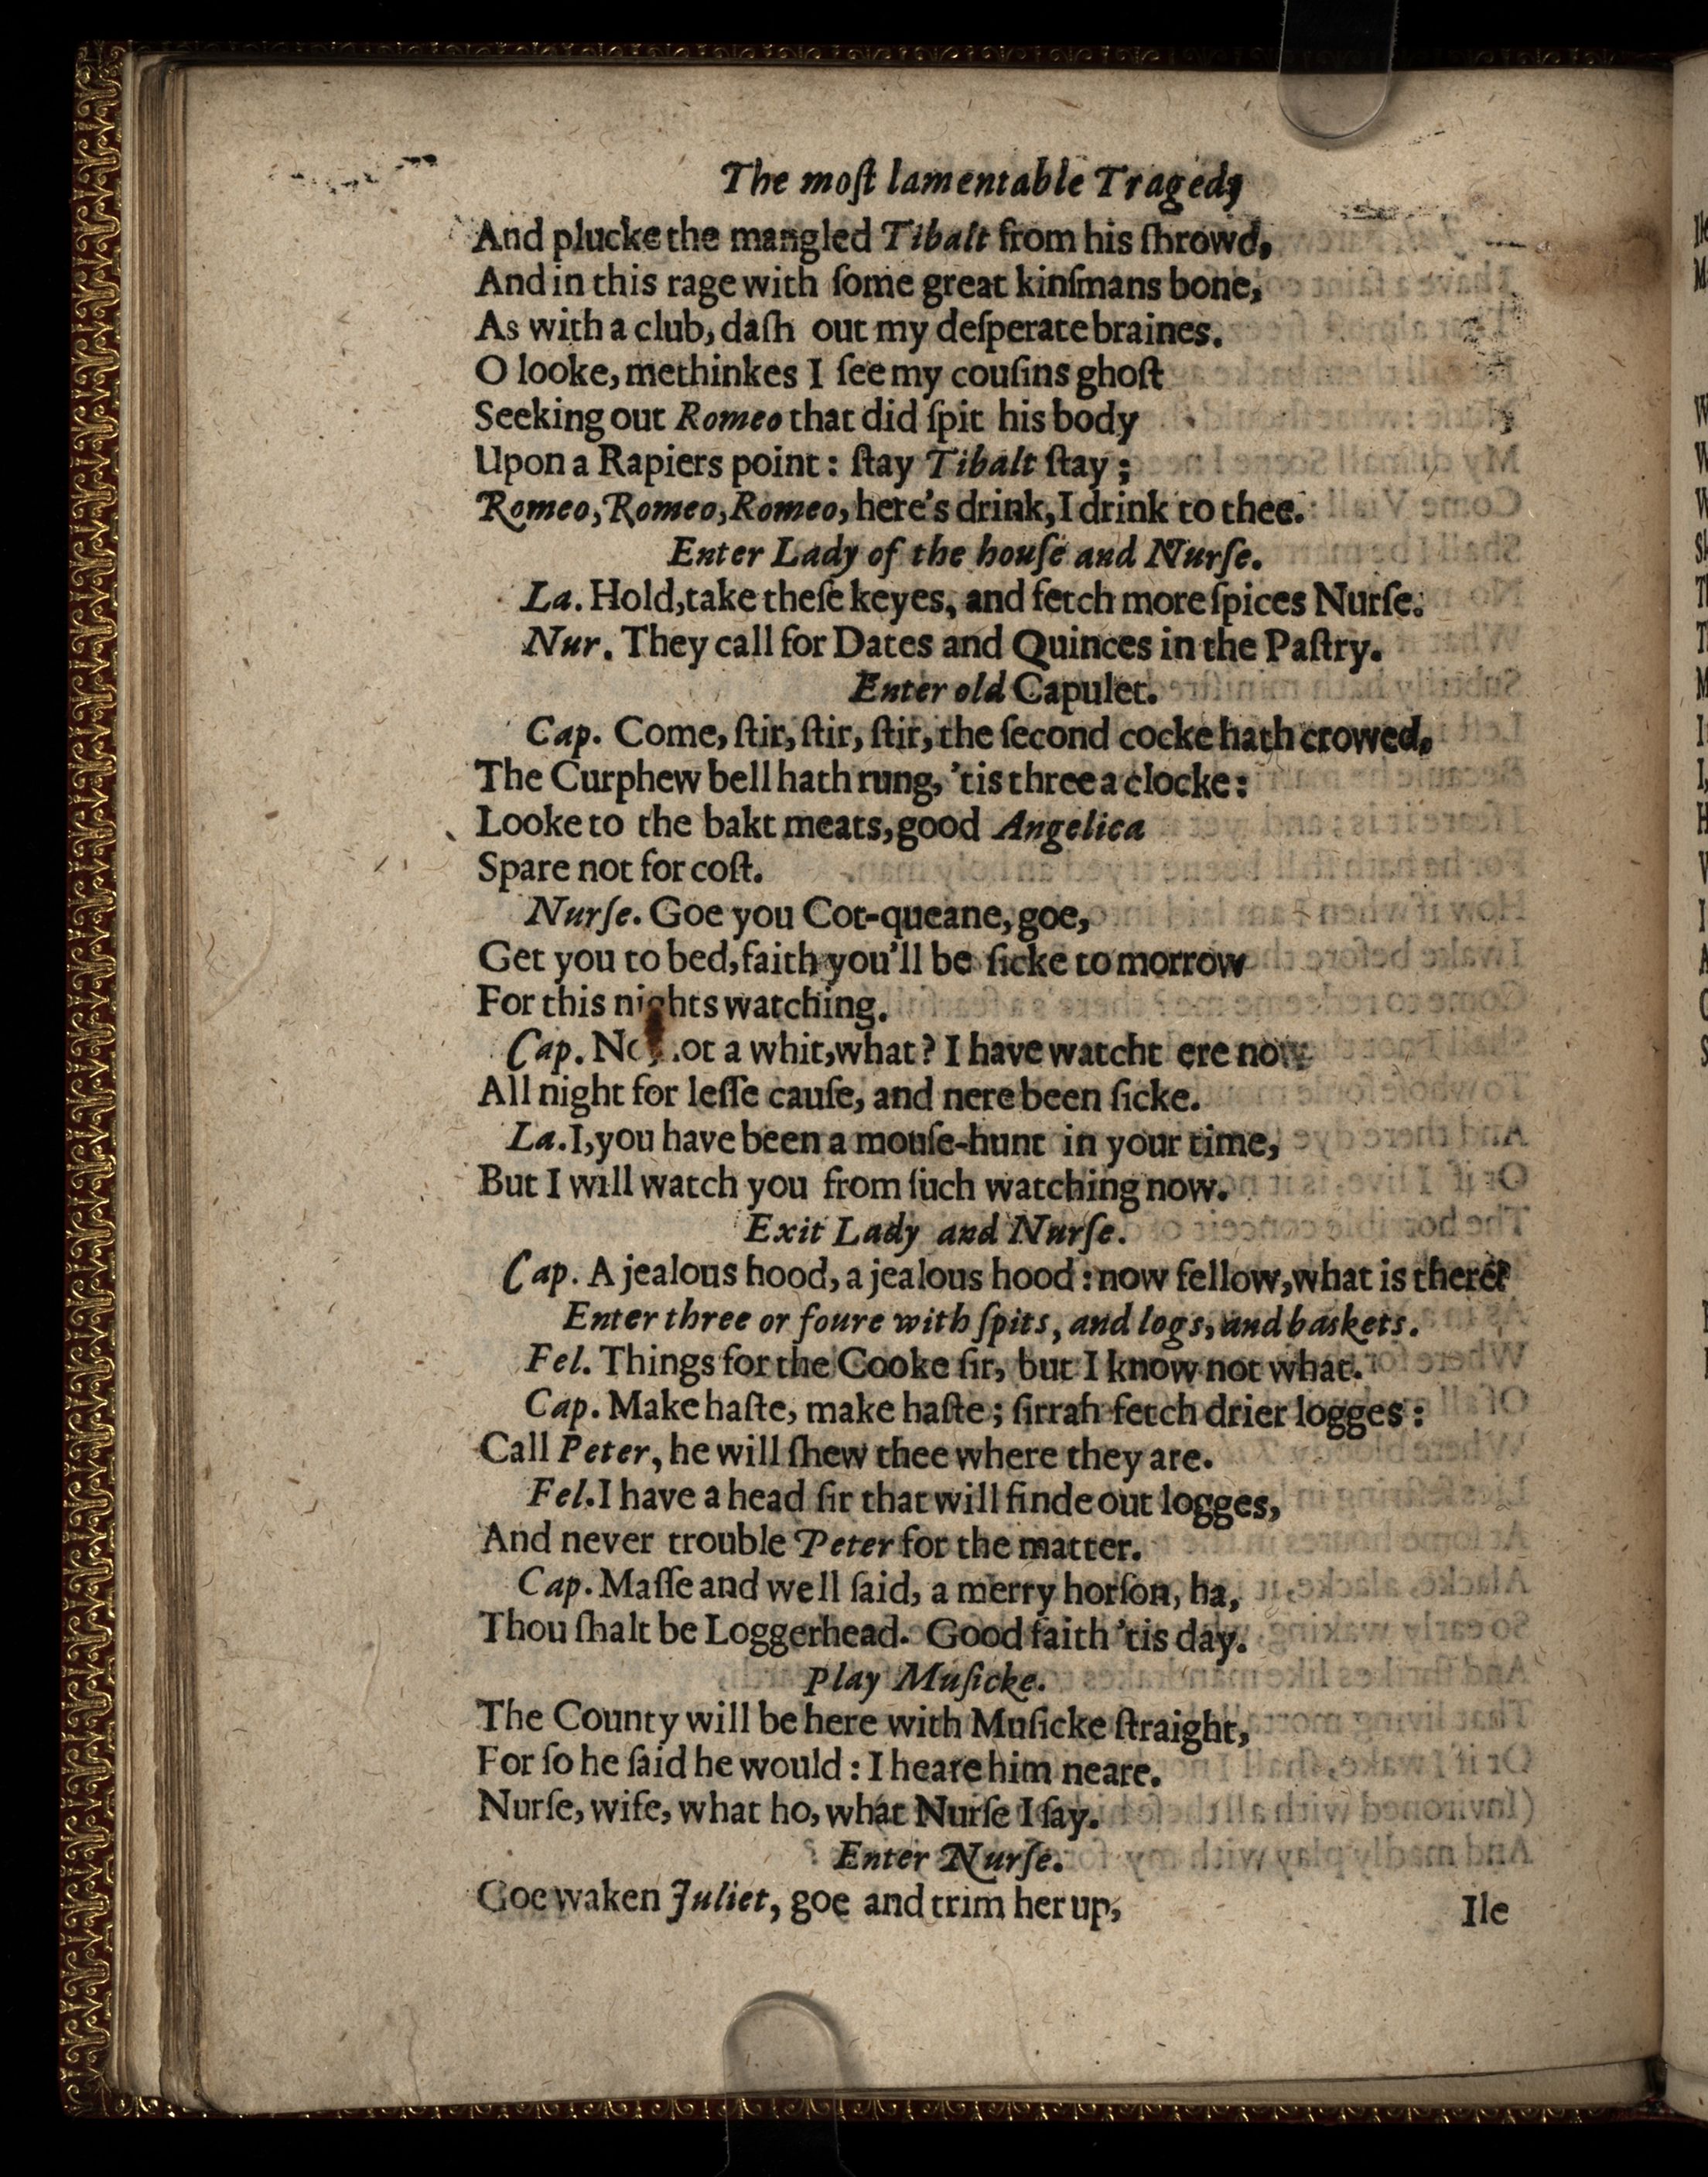 The moſt lamentable Tragedy
And plucke the mangled Tibalt from his ſhrowd,
And in this rage with ſome great kinſmans bone,
As with a club, daſh out my deſperate braines.
O looke, methinkes I ſee my couſins ghoſt
Seeking out Romeo that did ſpit his body
Upon a Rapiers point: ſtay Tibalt ſtay;
Romeo, Romeo, Romeo, here's drink, I drink to thee.
Enter Lady of the houſe and Nurſe.
La. Hold, take theſe keyes, and fetch more ſpices Nurſe.
Nur. They call for Dates and Quinces in the Paſtry.
Enter old Capulet.
Cap. Come, ſtir, ſtir, ſtir, the ſecond cocke hath crowed,
The Curphew bell hath rung, 'tis three a clocke:
Looke to the bakt meats, good Angelica
Spare not for coſt.
Nurſe. Goe you Cot-queane, goe,
Get you to bed, faith you'll be ſicke to morrow
For this nights watching.
Cap. No not a whit, what? I have watcht ere now
All night for leſſe cauſe, and nere been ſicke.
La. I, you have been a mouſe-hunt in your time,
But I will watch you from ſuch watching now.
Exit Lady and Nurſe.
Cap. A jealous hood, a jealous hood: now fellow, what is there?
Enter three or foure with ſpits, and logs, and baskets.
Fel. Things for the Cooke ſir, but I know not what.
Cap. Make haſte, make haſte; ſirrah fetch drier logges:
Call Peter, he will ſhew thee where they are.
Fel. I have a head ſir that will finde out logges,
And never trouble Peter for the matter.
Cap. Maſſe and well ſaid, a merry horſon, ha,
Thou ſhalt be Loggerhead. Good faith 'tis day.
Play Muſicke.
The County will be here with Muſicke ſtraight,
For ſo he ſaid he would: I heare him neare.
Nurſe, wife, what ho, what Nurſe I ſay.
Enter Nurſe.
Goe waken Juliet, goe and trim her up,
Ile